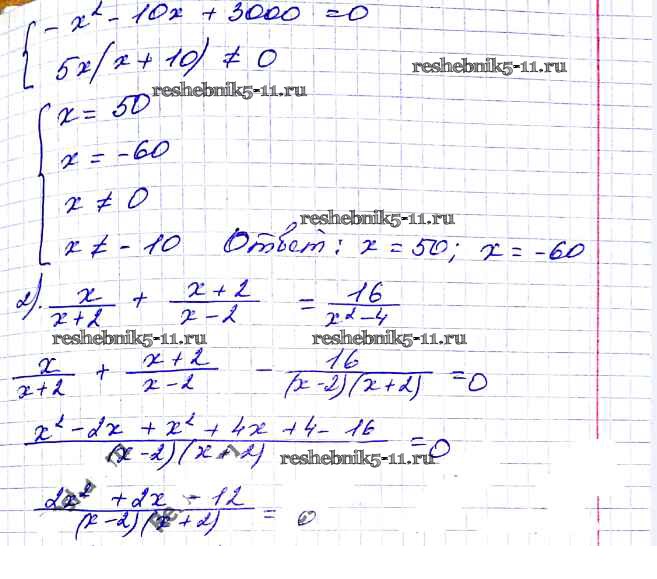 - x² - 10x + 3000 = 0
5x(x + 10) ≠ 0
reshebnik5-11.ru
reshebnik5-11.ru
x = 50
x = -60
x ≠ 0
reshebnik5-11.ru
x ≠ -10 Ответ: x = 50; x = -60
2). x/(x+2) + (x+2)/(x-2) = 16/(x²-4)
reshebnik5-11.ru reshebnik5-11.ru
x/(x+2) + (x+2)/(x-2) - 16/((x-2)(x+2)) = 0
(x² - 2x + x² + 4x + 4 - 16)/((x-2)(x+2)) = 0
reshebnik5-11.ru
(2x² + 2x - 12)/((x-2)(x+2)) = 0